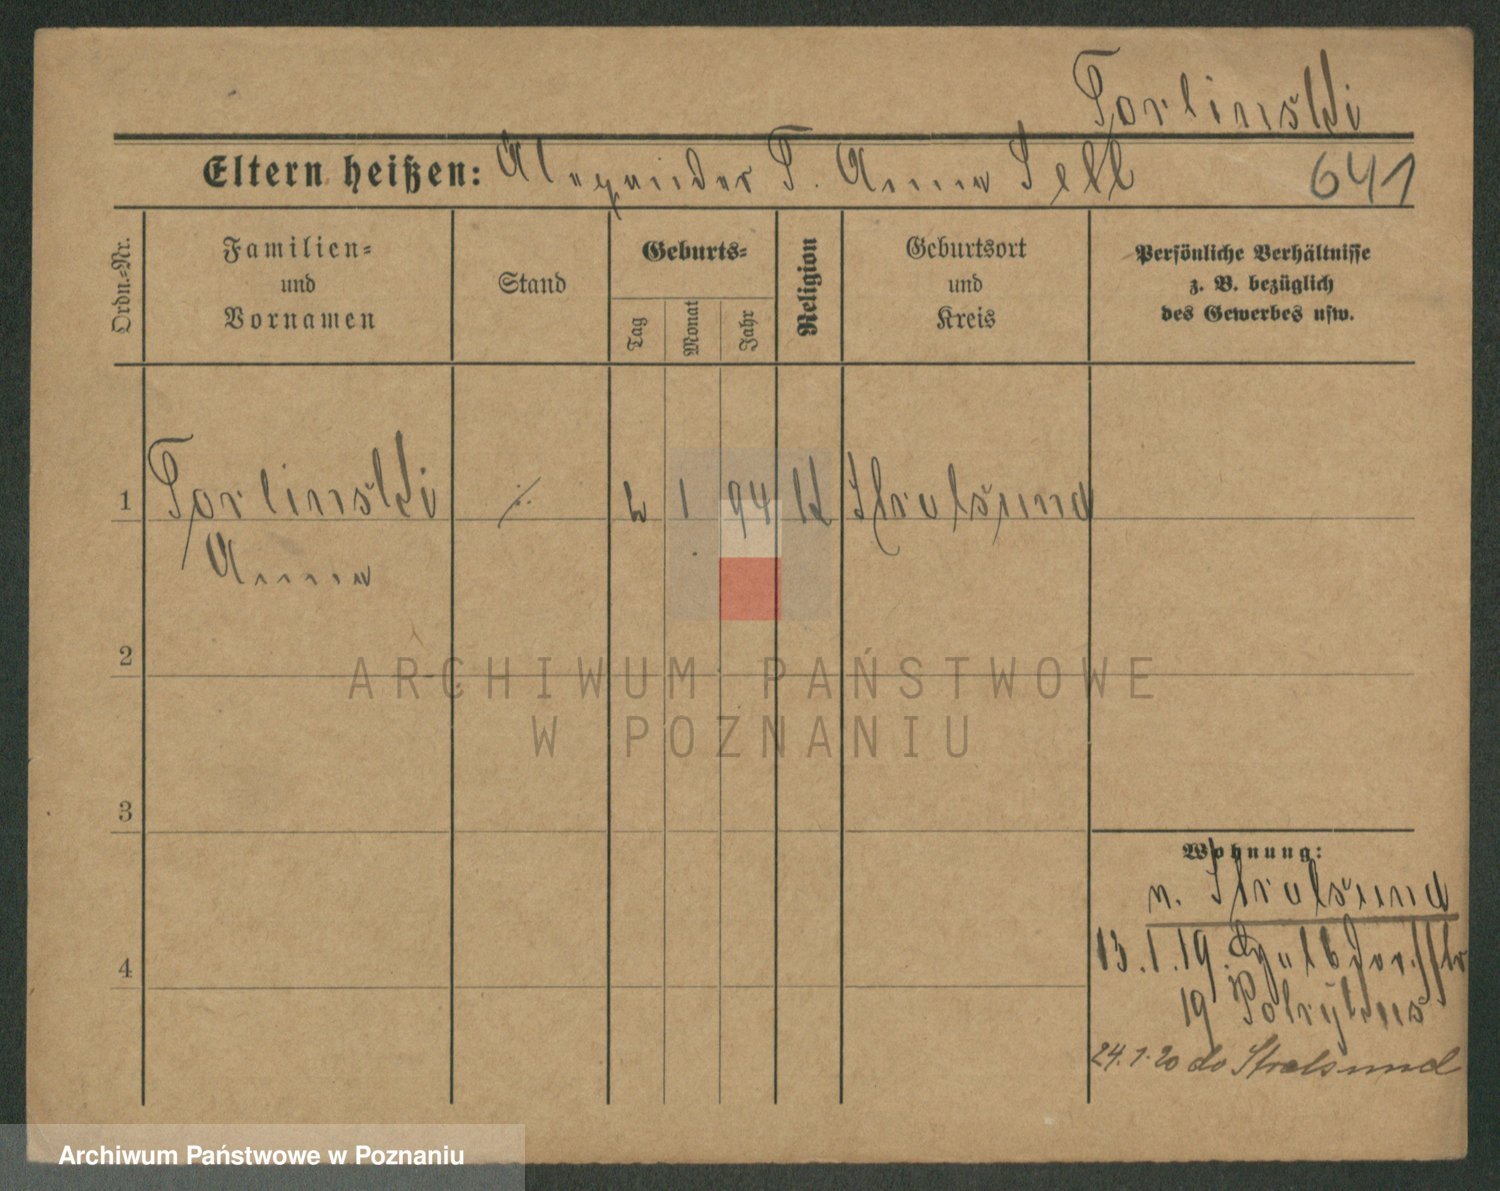 Torlinski
Eltern heißen: Alexander T. Anna Sell
641
Ordn.-Nr.
Familien-
und
Vornamen
Stand
Geburts-
Tag
Monat
Jahr
Religion
Geburtsort
und
Kreis
Persönliche Verhältnisse
z. B. bezüglich
des Gewerbes usw.
1 Torlinski ./. 2 1 94 K Stralsund
Anna
2
ARCHIWUM PAŃSTWOWE
W POZNANIU
3
Wohnung:
n. Stralsund
13.1.19.
4
19
24.1.20 do Stralsund
Archiwum Państwowe w Poznaniu